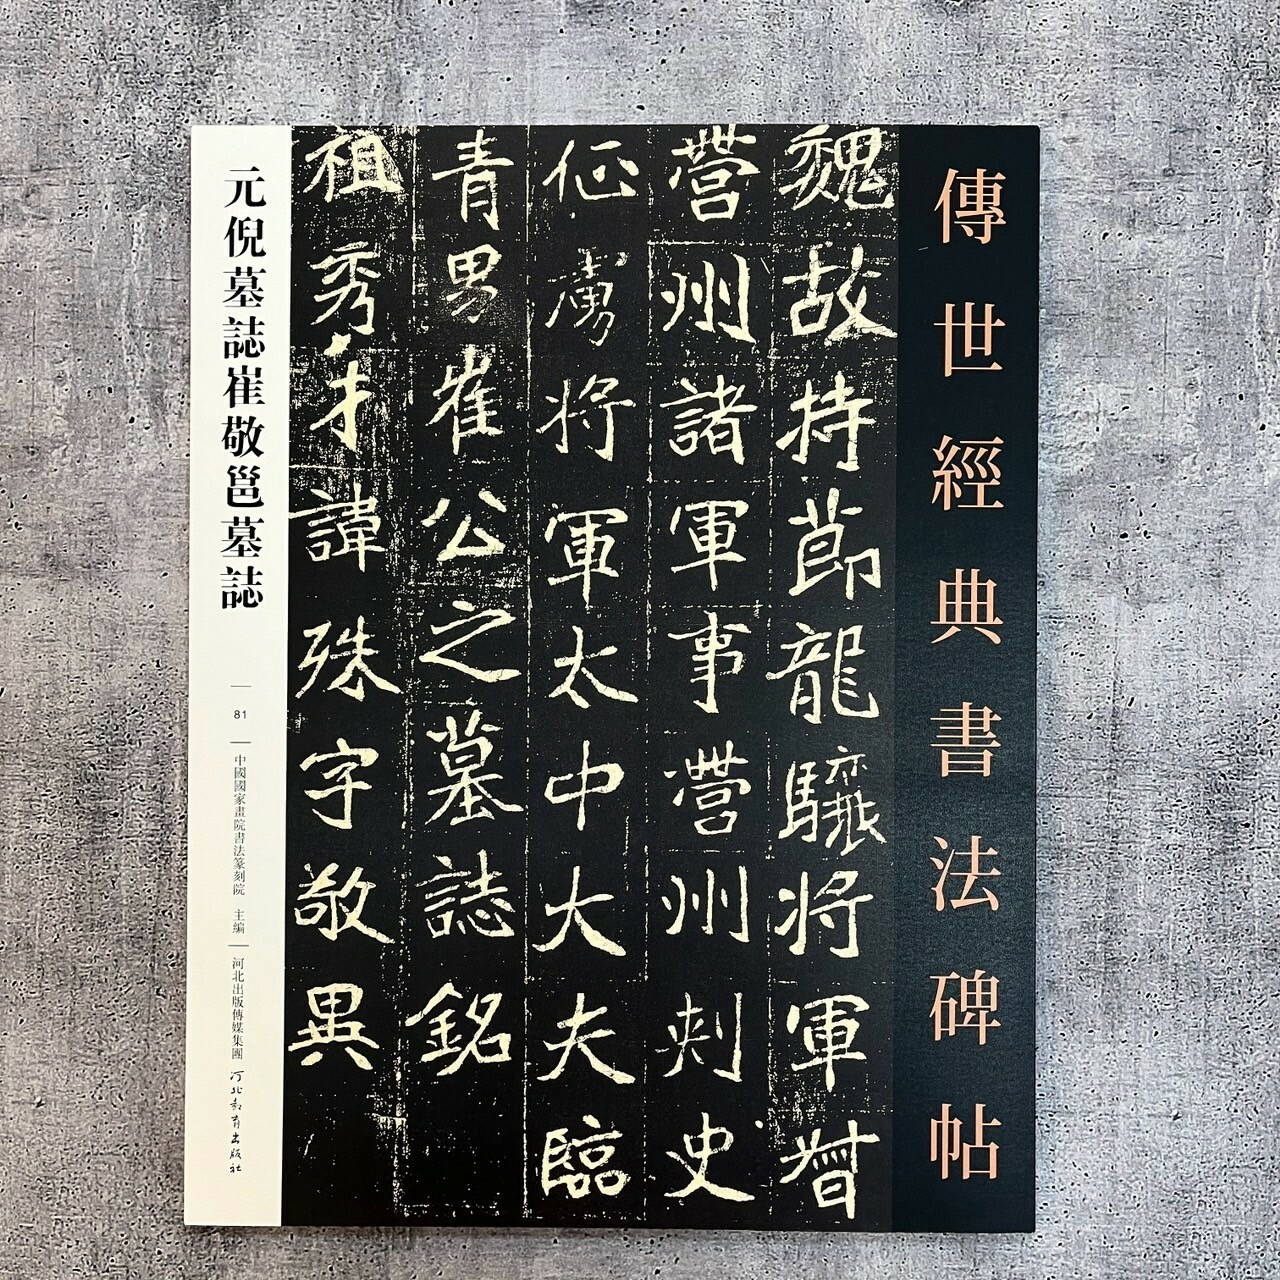 傳世經典書法碑帖
魏故持節龍驤將軍督
營州諸軍事營州刺史
征虜將軍太中大夫臨
青男崔公之墓誌銘
祖秀才諱殊字敬異
元倪墓誌崔敬邕墓誌
81
中國國家畫院書法篆刻院 主編
河北出版傳媒集團
河北教育出版社